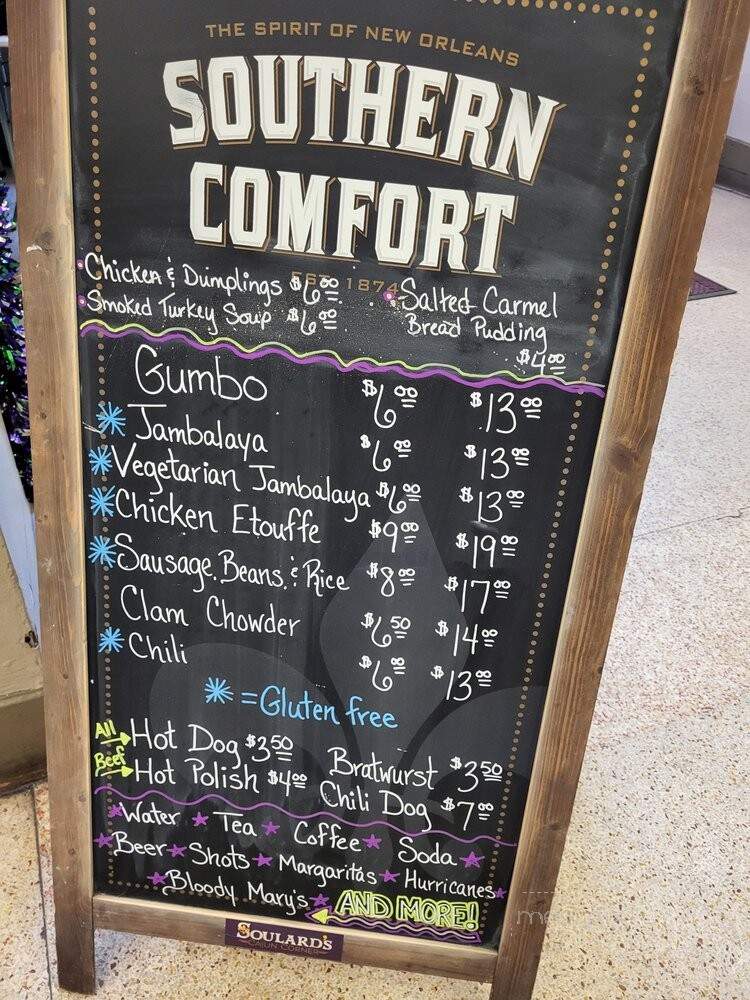 THE SPIRIT OF NEW ORLEANS
SOUTHERN
COMFORT
EST. 1874
Chicken & Dumplings $6.00
Smoked Turkey Soup $6.00
Salted Carmel
Bread Pudding
$4.00
Gumbo $6.00 $13.00
* Jambalaya $6.00 $13.00
* Vegetarian Jambalaya $6.00 $13.00
* Chicken Etouffe $9.00 $19.00
* Sausage, Beans, & Rice $8.00 $17.00
Clam Chowder $6.50 $14.00
* Chili $6.00 $13.00
* = Gluten free
All Beef
Hot Dog $3.50 Bratwurst $3.50
Hot Polish $4.00 Chili Dog $7.00
Water Tea Coffee Soda
Beer Shots Margaritas Hurricanes
Bloody Mary's AND MORE!
SOULARD'S
CAJUN CORNER